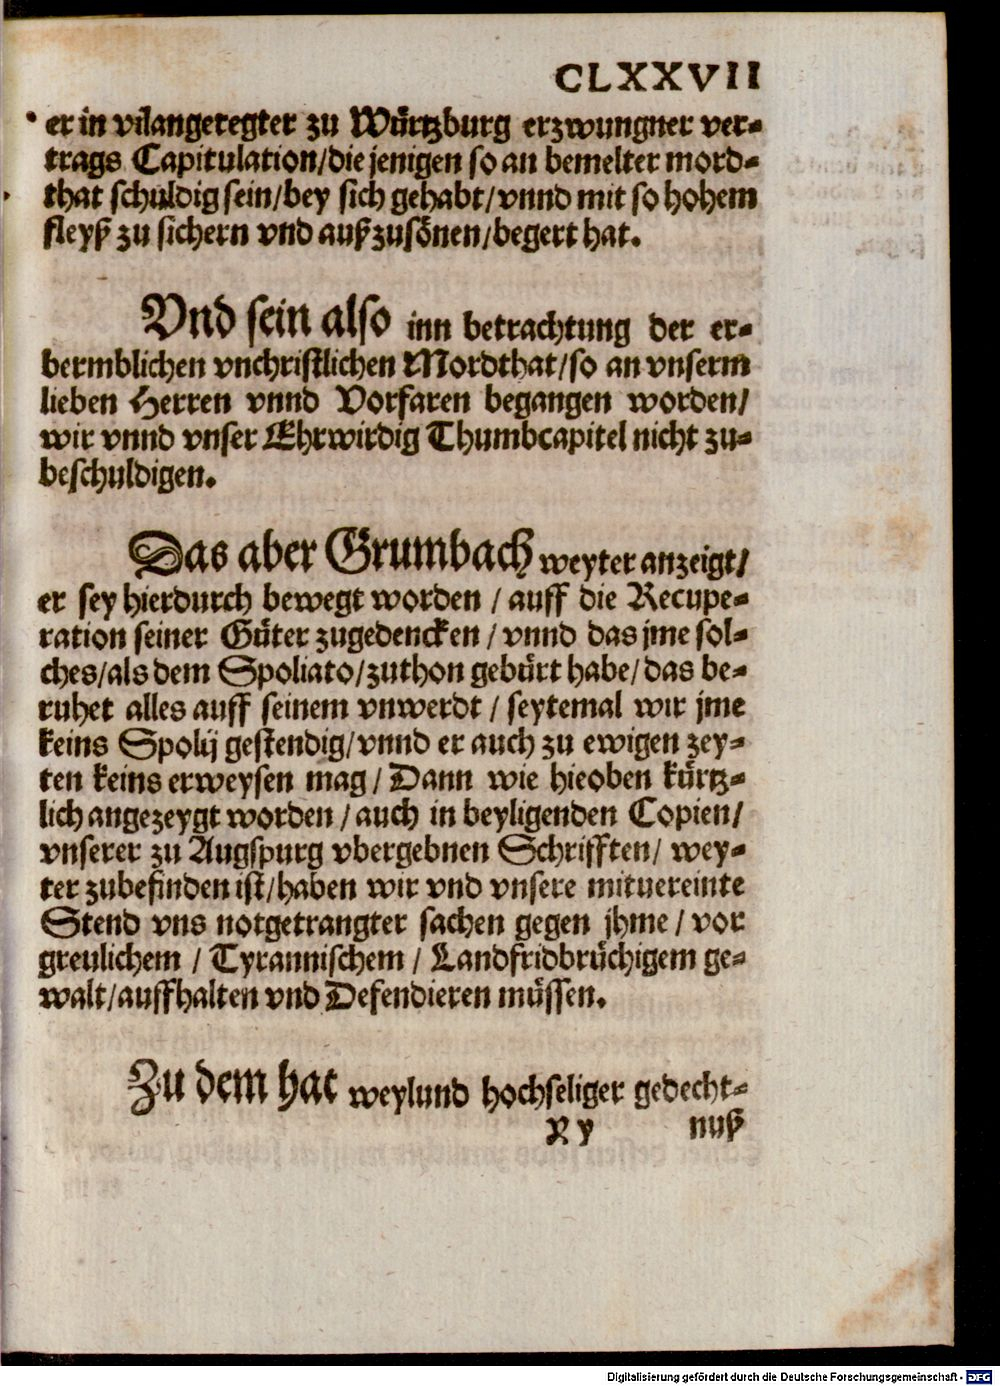 CLXXVII
er in vilangeregter zu Würtzburg erzwungner ver-
trags Capitulation/die jenigen so an bemelter mord-
that schuldig sein/bey sich gehabt/vnnd mit so hohem
fleyß zu sichern vnd außzusönen/begert hat.
Vnd sein also inn betrachtung der er-
bermblichen vnchristlichen Mordthat/so an vnserm
lieben Herren vnnd Vorfaren begangen worden/
wir vnnd vnser Ehrwirdig Thumbcapitel nicht zu-
beschuldigen.
Das aber Grumbach weyter anzeigt/
er sey hierdurch bewegt worden / auff die Recupe-
ration seiner Güter zugedencken / vnnd das jme sol-
ches/als dem Spoliato/zuthon gebürt habe/das be-
ruhet alles auff seinem vnwerdt / seytemal wir jme
keins Spolij gestendig/vnnd er auch zu ewigen zey-
ten keins erweysen mag / Dann wie hieoben kürtz-
lich angezeygt worden / auch in beyligenden Copien/
vnserer zu Augspurg vbergebnen Schrifften/ wey-
ter zubefinden ist/haben wir vnd vnsere mituereinte
Stend vns notgetrangter sachen gegen jhme / vor
greulichem / Tyrannischem / Landfridbrüchigem ge-
walt/auffhalten vnd Defendieren müssen.
Zu dem hat weylund hochseliger gedecht-
Xy nuß
Digitalisierung gefördert durch die Deutsche Forschungsgemeinschaft - DFG